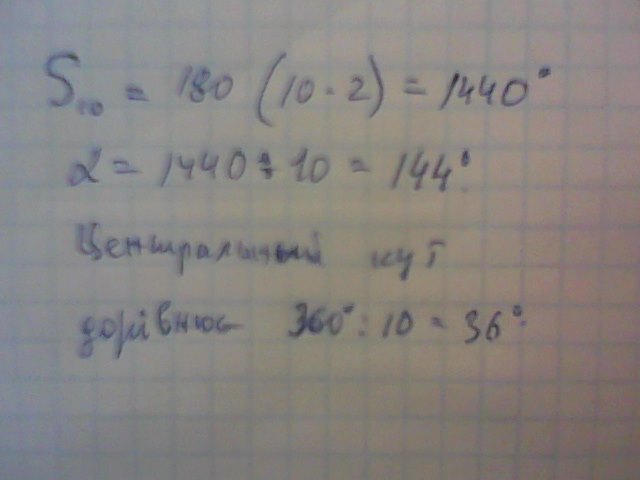 S₁₀ = 180 (10 - 2) = 1440°
α = 1440 : 10 = 144°.
Центральний кут
дорівнює 360° : 10 = 36°.